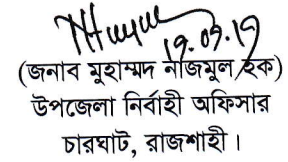 ১৭.০৭.১৭
(জনাব মুহাম্মদ নাজমুল হক)
উপজেলা নির্বাহী অফিসার
চারঘাট, রাজশাহী।